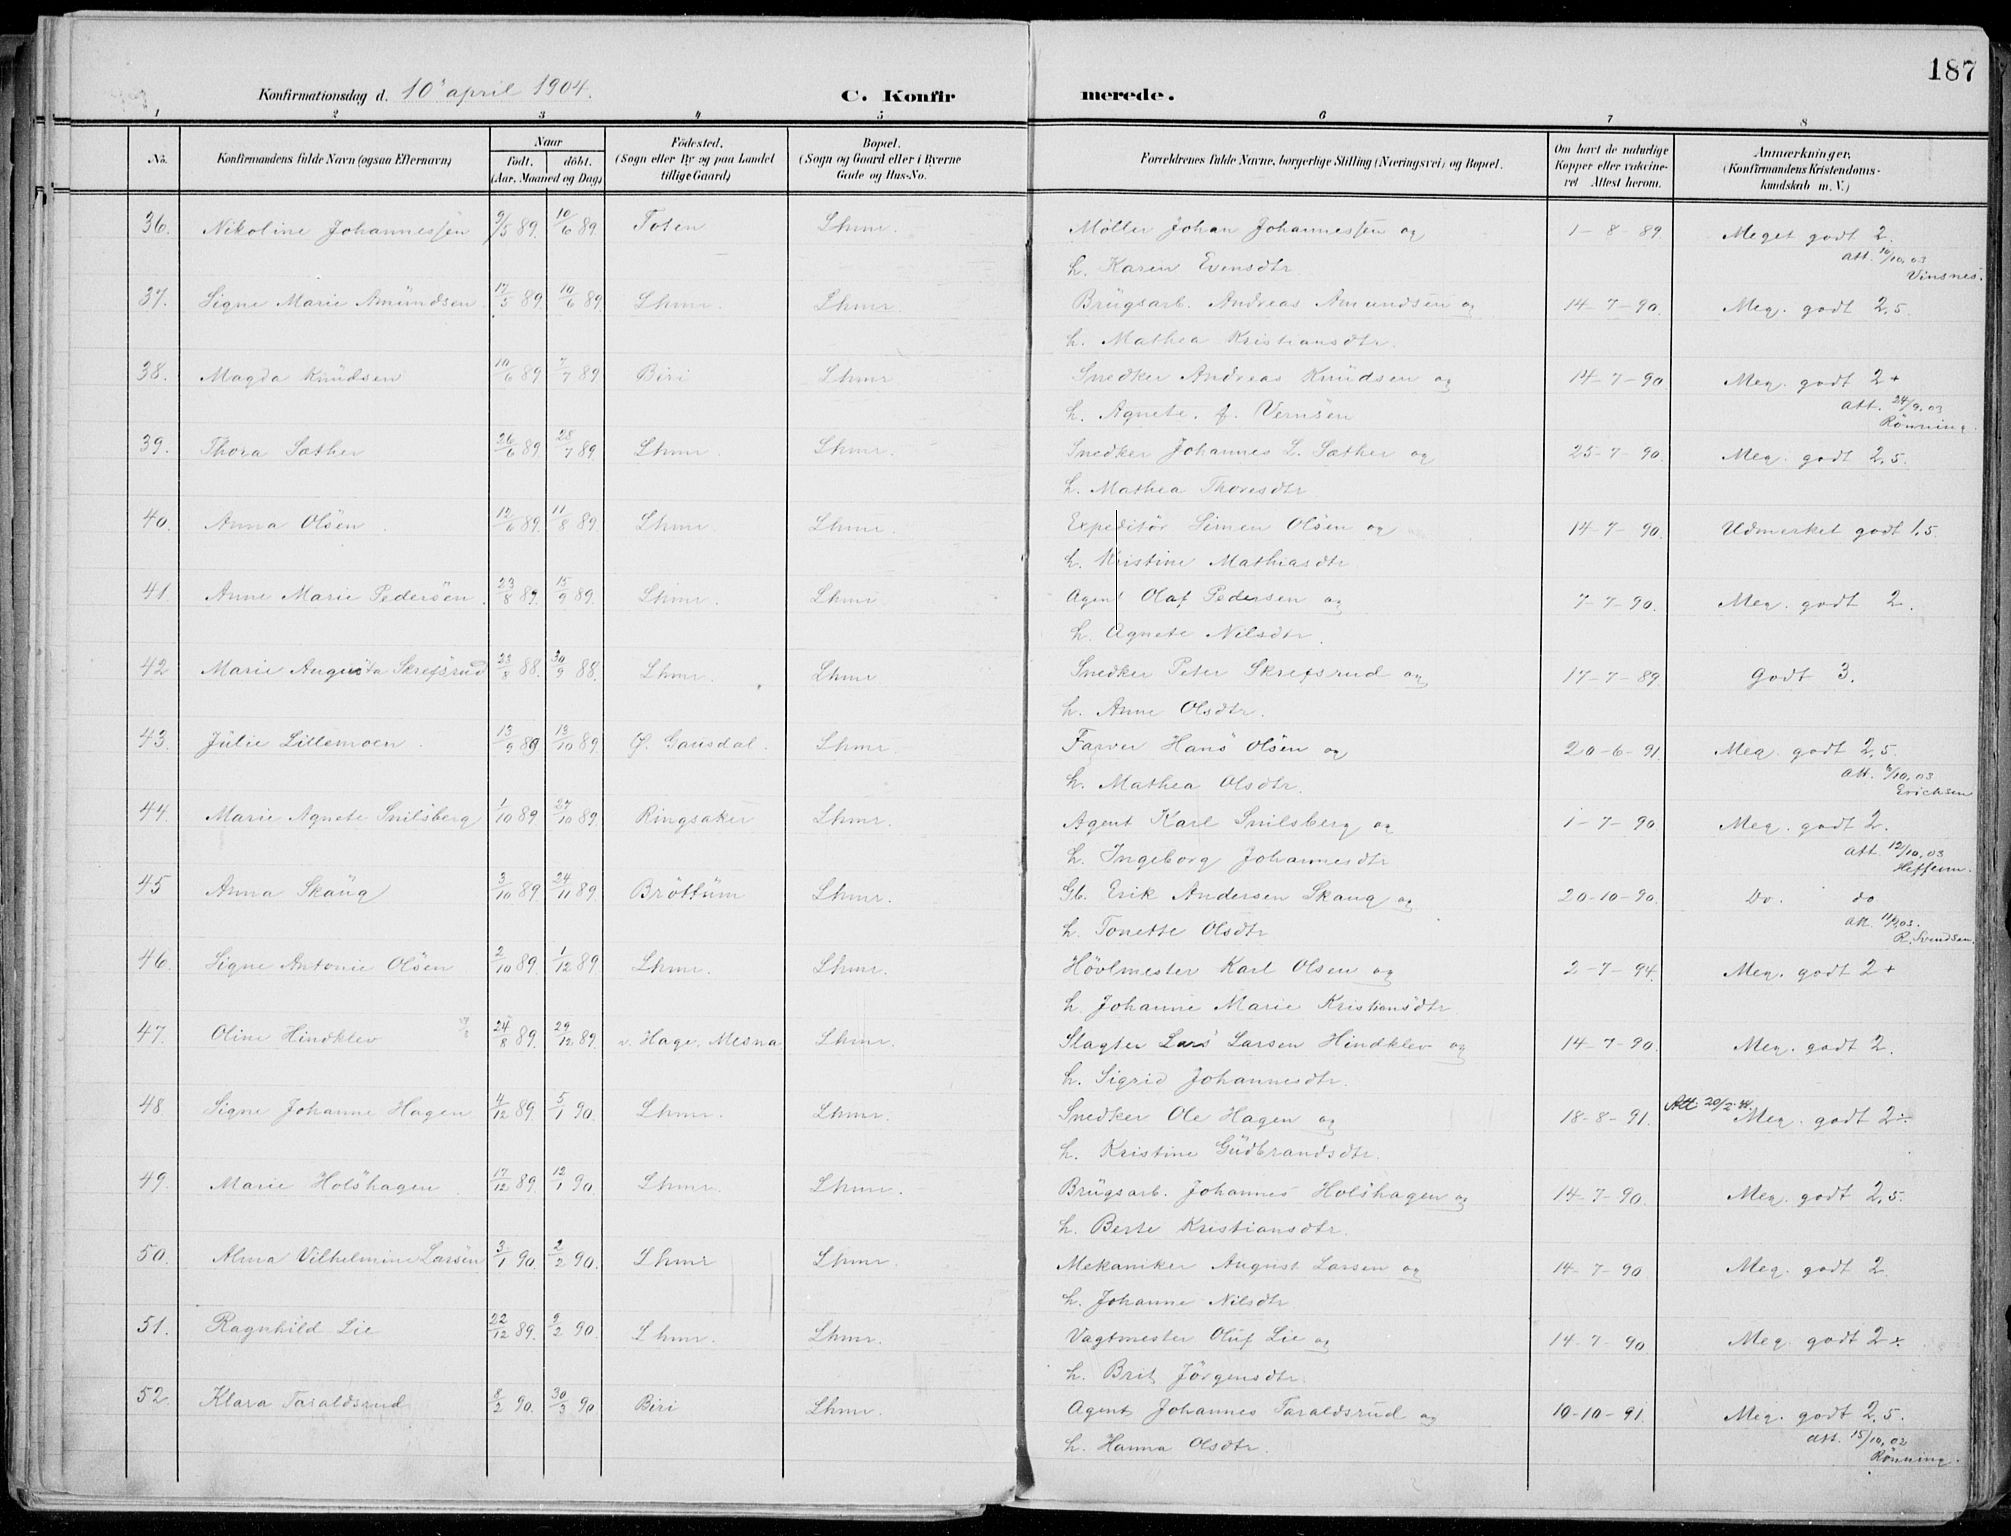 187
Konfirmationsdag d. 10' april 1904. C. Konfirmerede.
1 2 3 4 5 6 7 8
No. Konfirmandens fulde Navn (ogsaa Efternavn) Naar Födt. döbt. (Aar, Maaned og Dag) Födested. (Sogn eller By og paa Landet tillige Gaard) Bopæl. (Sogn og Gaard eller i Byerne Gade og Hus-No. Forældrenes fulde Navne, borgerlige Stilling (Næringsvei) og Bopæl. Om havt de naturlige Kopper eller vaksineret Attest herom. Anmærkninger, (Konfirmandens Kristendomskundskab m. V.)
36. Nikoline Johannessen 9/5 89. 10/6 89. Toten Lhmr. Møller Johan Johannessen og 1-8-89. Meget godt 2.
h. Karen Evensdtr. att. 10/10,03 Vinsnes.
37. Signe Marie Amundsen 17/5 89. 10/6 89. Lhmr. Lhmr. Brugsarb. Andreas Amundsen og 14-7-90. Meg. godt 2,5.
h. Mathea Kristiansdtr.
38. Magda Knudsen 10/6 89 7/7 89 Biri Lhmr Snedker Andreas Knudsen og 14-7-90. Meg. godt 2+
h. Agnete, f. Vernsen att. 24/9,03 Rönning.
39. Thora Sæther 26/6 89 28/7 89 Lhmr. Lhmr. Snedker Johannes L. Sæther og 25-7-90. Meg. godt 2,5.
h. Mathea Thoresdtr
40. Anna Olsen. 12/6 89. 11/8 89. Lhmr. Lhmr. Expeditör Simen Olsen og 14-7-90. Udmerket godt 1,5.
h. Kristine Mathiasdtr
41. Anne Marie Pedersen. 23/8 89. 15/9 89. Lhmr. Lhmr Agent Olaf Pedersen og 7-7-90. Meg. godt 2.
h. Agnete Nilsdtr.
42 Marie Augusta Skrefsrud 23/8 88. 30/9 88. Lhmr. Lhmr Snedker Peter Skrefsrud og 17-7-89. Godt 3.
h. Anne Olsdtr.
43. Julie Lillemoen. 13/9 89 13/10 89. Ø. Gausdal. Lhmr. Farver Hans Olsen og 20-6-91. Meg. godt 2,5.
h. Mathea Olsdtr. att. /10,03 Erichsen
44. Marie Agnete Snilsberg 1/10 89 27/10 89. Ringsaker Lhmr. Agent Karl Snilsberg og 1-7-90 Meg. godt 2.
h. Ingeborg Johannesdtr att. 12/10,03
45 Anna Skaug 3/10 89. 24/11 89. Bröttum Lhmr. Gb. Erik Andersen Skaug og 20-10-90. Do. do
h. Tonette Olsdtr att. 03. R. Svendsen.
46. Signe Antonie Olsen 2/10 89. 1/12 89. Lhmr. Lhmr. Hövlmester Karl Olsen og 2-7-94. Meg. godt 2+
h. Johanne Marie Kristiansdtr.
47. Oline Hindklev 24/8 89. 29/12 89. v. Hage, Mesna Lhmr. Slagter Lars Larsen Hindklev og 14-7-90. Meg. godt 2.
h. Sigrid Johannesdtr.
48. Signe Johanne Hagen 4/12 89 5/1 90 Lhmr. Lhmr. Snedker Ole Hagen og 18-8-91. Att. 20/2 Meg. godt 2÷
h. Kristine Gudbrandsdtr.
49. Marie Holshagen. 17/12 89 12/1 90. Lhmr. Lhmr. Brugsarb. Johannes Holshagen og 14-7-90. Meg. godt 2,5.
h. Berte Kristiansdtr.
50. Alma Vilhelmine Larsen 3/1 90. 2/2 90. Lhmr Lhmr. Mekaniker August Larsen og 14-7-90. Meg. godt 2.
h. Johanne Nilsdtr
51. Ragnhild Lie 22/12 89. 9/2 90. Lhmr. Lhmr. Vagtmester Oluf Lie og 14-7-90 Meg. godt 2÷
h. Brit Jörgensdtr.
52. Klara Taraldsrud 8/2 90. 30/3 90 Biri Lhmr. Agent Johannes Taraldsrud og 10-10-91. Meg. godt 2,5.
h. Hanna Olsdtr. att. 15/10,02 Rönning.